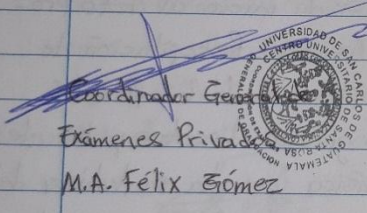 Coordinador General de
Exámenes Privados
M.A. Félix Gómez
UNIVERSIDAD DE SAN CARLOS DE GUATEMALA
CENTRO UNIVERSITARIO DE SANTA ROSA